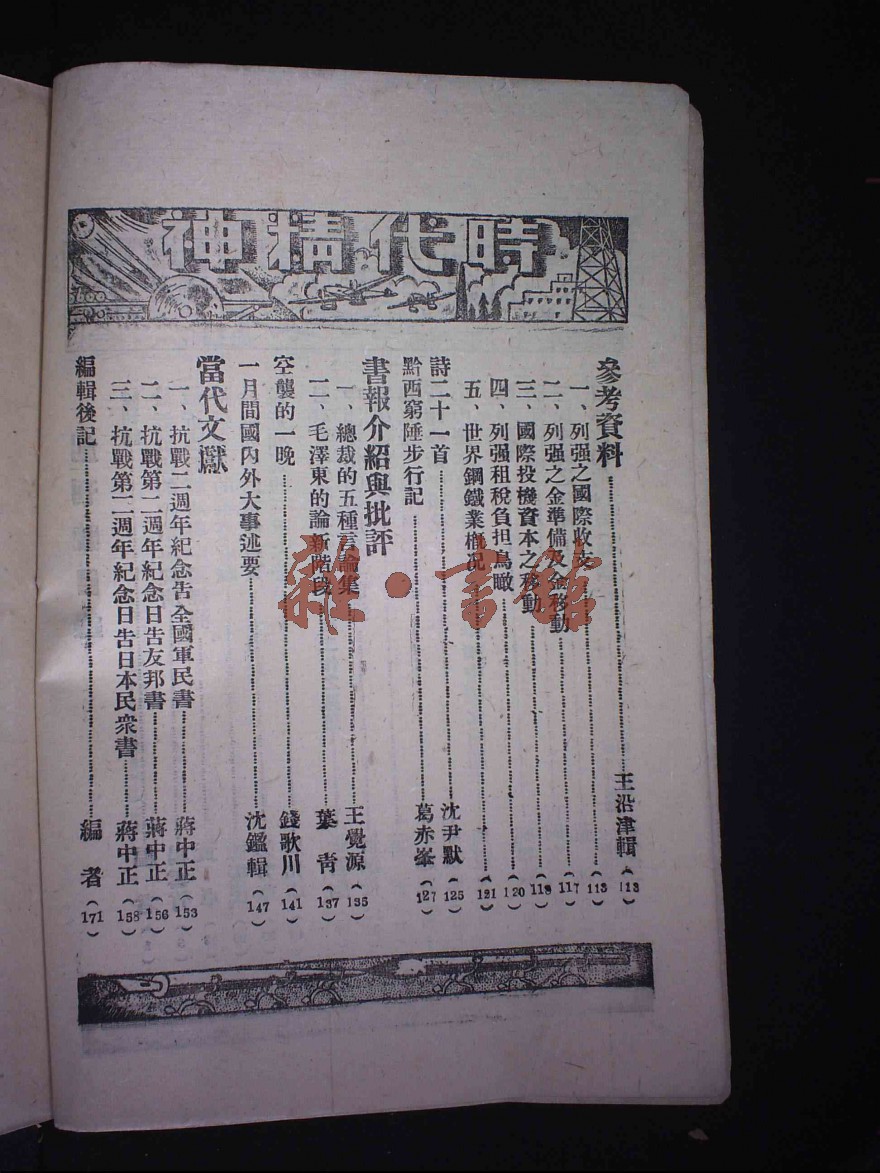 時代精神
參考資料……王沿津輯(113)
一、列强之國際收支……(113)
二、列强之金準備及金移動……(117)
三、國際投機資本之移動……(119)
四、列强租稅負担鳥瞰……(120)
五、世界鋼鐵業概况……(121)
詩二十一首……沈尹默(125)
黔西窮陲步行記……葛赤峯(127)
書報介紹與批評
一、總裁的五種言論集……王覺源(135)
二、毛澤東的論新階段……葉青(137)
空襲的一晚……錢歌川(141)
一月間國內外大事述要……沈鑑輯(147)
當代文獻
一、抗戰二週年紀念告全國軍民書……蔣中正(153)
二、抗戰第二週年紀念日告友邦書……蔣中正(156)
三、抗戰第二週年紀念日告日本民衆書……蔣中正(158)
編輯後記……編者(171)
雜·書館